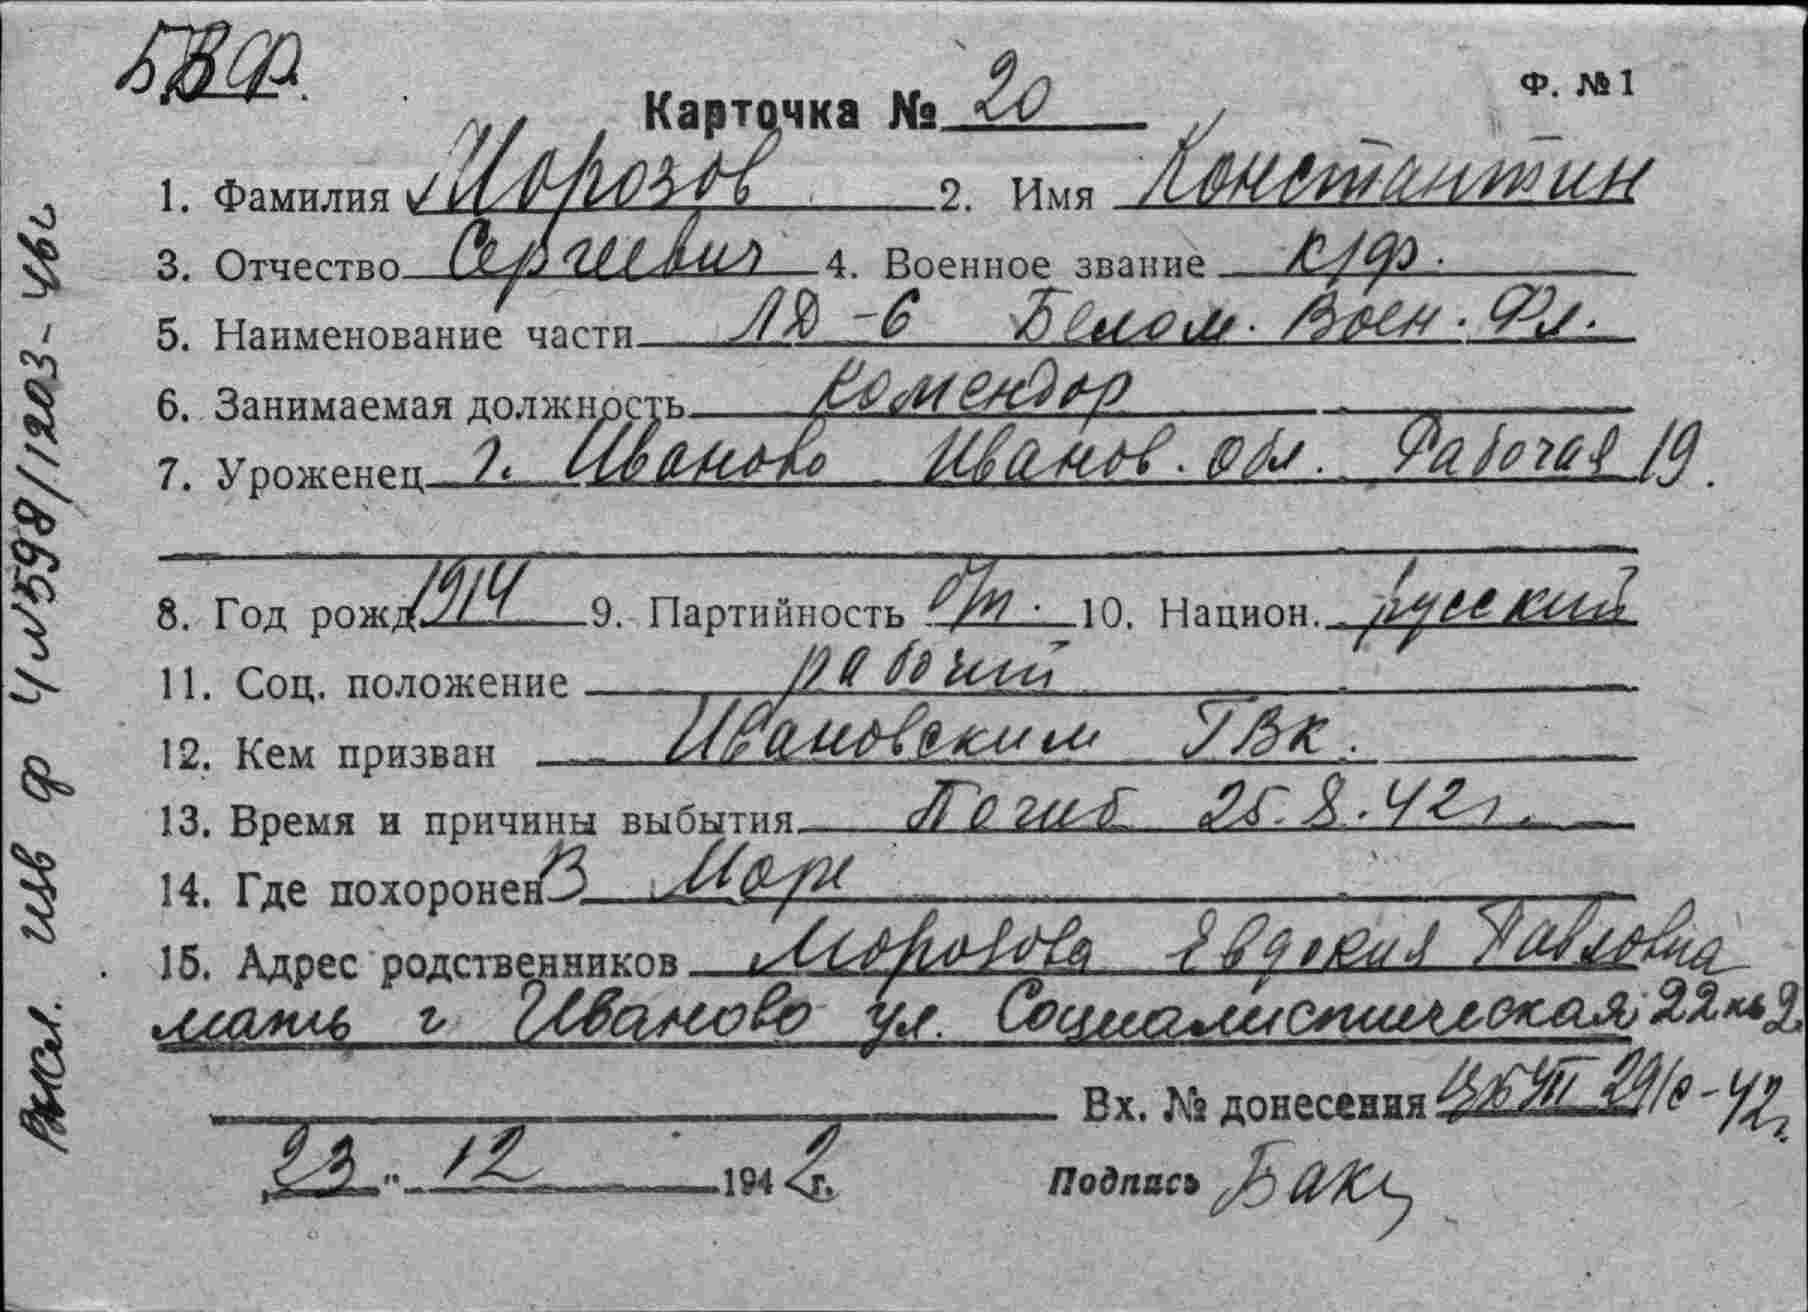 БВФ.
Ф. №1
Карточка № 20
1. Фамилия Морозов 2. Имя Константин
3. Отчество Сергеевич 4. Военное звание к/ф.
5. Наименование части ЛД-6 Белом. Воен. Фл.
6. Занимаемая должность комендор
7. Уроженец г. Иваново Иванов. обл. Рабочая 19.
8. Год рожд. 1914 9. Партийность б/п. 10. Национ. русский
11. Соц. положение рабочий
12. Кем призван Ивановским ГВк.
13. Время и причины выбытия Погиб 25.8.42г.
14. Где похоронен В Море
15. Адрес родственников Морозова Евдокия Павловна
мать г Иваново ул. Социалистическая 22 кв 2.
Вх. № донесения
23 " 12 1942г. Подпись